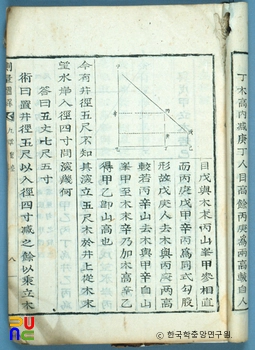 丁木高內減庚丁人目高餘丙庚為兩高較自人
目戊與木末丙山峯甲參相直
而丙庚戊甲辛丙為同式勾股
形故戊庚人去木與丙庚兩高
較若丙辛山去木與甲辛自山
峯甲至木末辛乃加木高辛乙
得甲乙卽山高也
今有井徑五尺不知其深立五尺木於井上從木末
望水岸入徑四寸問深幾何
答曰五丈七尺五寸
術曰置井徑五尺以入徑四寸減之餘以乘立木
測量圖解
八
한국학중앙연구원